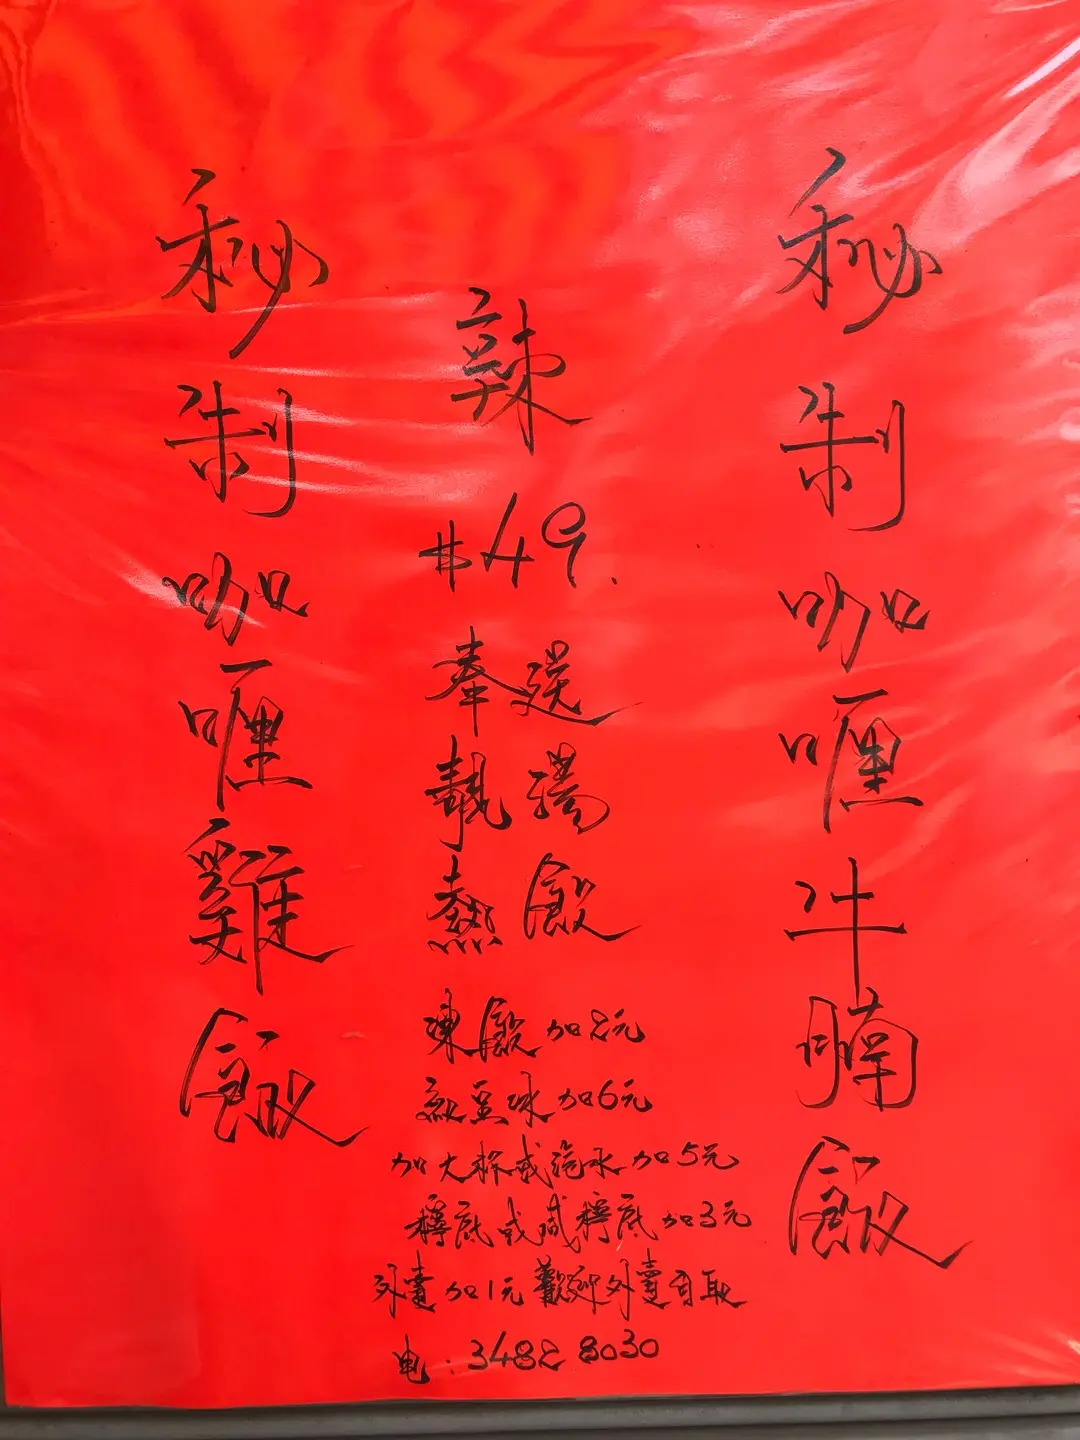 秘制咖喱牛腩飯
辣
$49.
奉送
靚湯
熱飲
凍飲加2元
紅豆冰加6元
加大杯或汽水加5元
檸底或咸檸底加3元
外賣加1元歡迎外賣自取
电:3482 8030
秘制咖喱雞飯